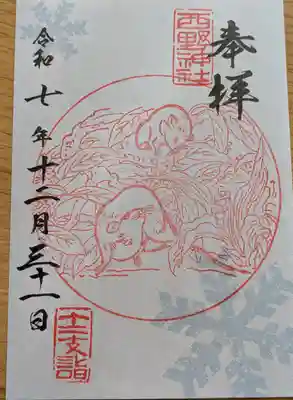 奉拝
西野神社
令和七年十二月三十一日
十二支詣